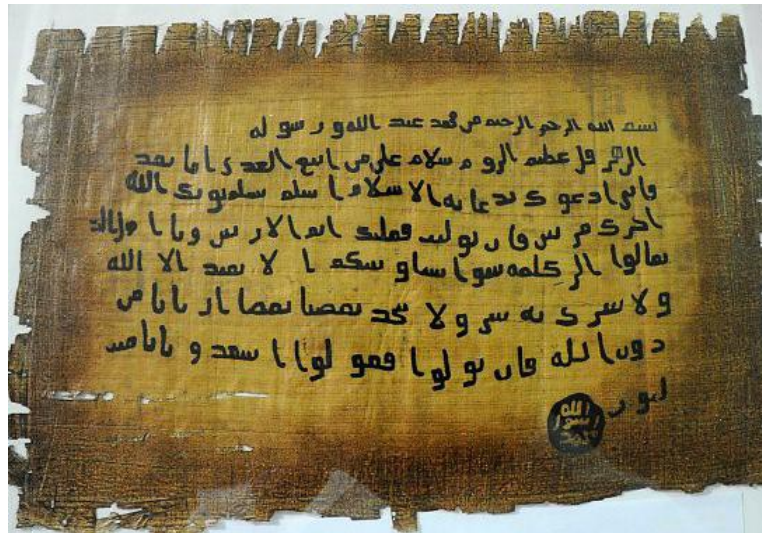 بسم الله الرحمن الرحيم من محمد عبد الله ورسوله
الى هرقل عظيم الروم سلام على من اتبع الهدى اما بعد
فانى ادعوك بدعايه الاسلام اسلم تسلم يوتك الله
اجرك مرتين فان توليت فعليك اثم الاريسين ويا
تعالوا الى كلمه سوا بيننا وبينكم ا لا نعبد الا الله
ولا نشرك به شيا ولا يتخذ بعضنا بعضا اربابا من
دون الله فان تولوا فقولوا اشهدوا بانا مس
لمون
الله
رسول
محمد